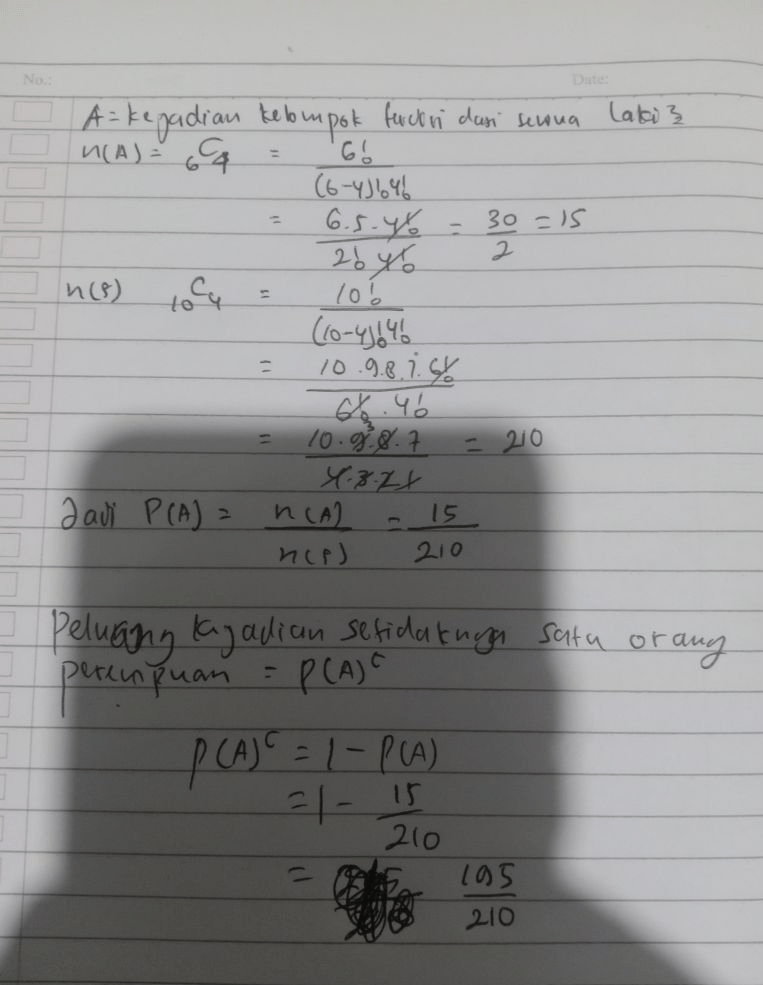 No.: Date:
A = kejadian kelompok terdiri dari semua laki2
n(A) = 6C4 = 6! / (6-4)!4!
= 6.5.4! / 2!4! = 30/2 = 15
n(s) 10C4 = 10! / (10-4)!4!
= 10.9.8.7.6! / 6!.4!
= 10.9.8.7 / 4.3.2.1 = 210
Jadi P(A) = n(A) / n(s) = 15/210
Peluang kejadian setidaknya satu orang
perempuan = P(A)ᶜ
P(A)ᶜ = 1 - P(A)
= 1 - 15/210
= 195/210